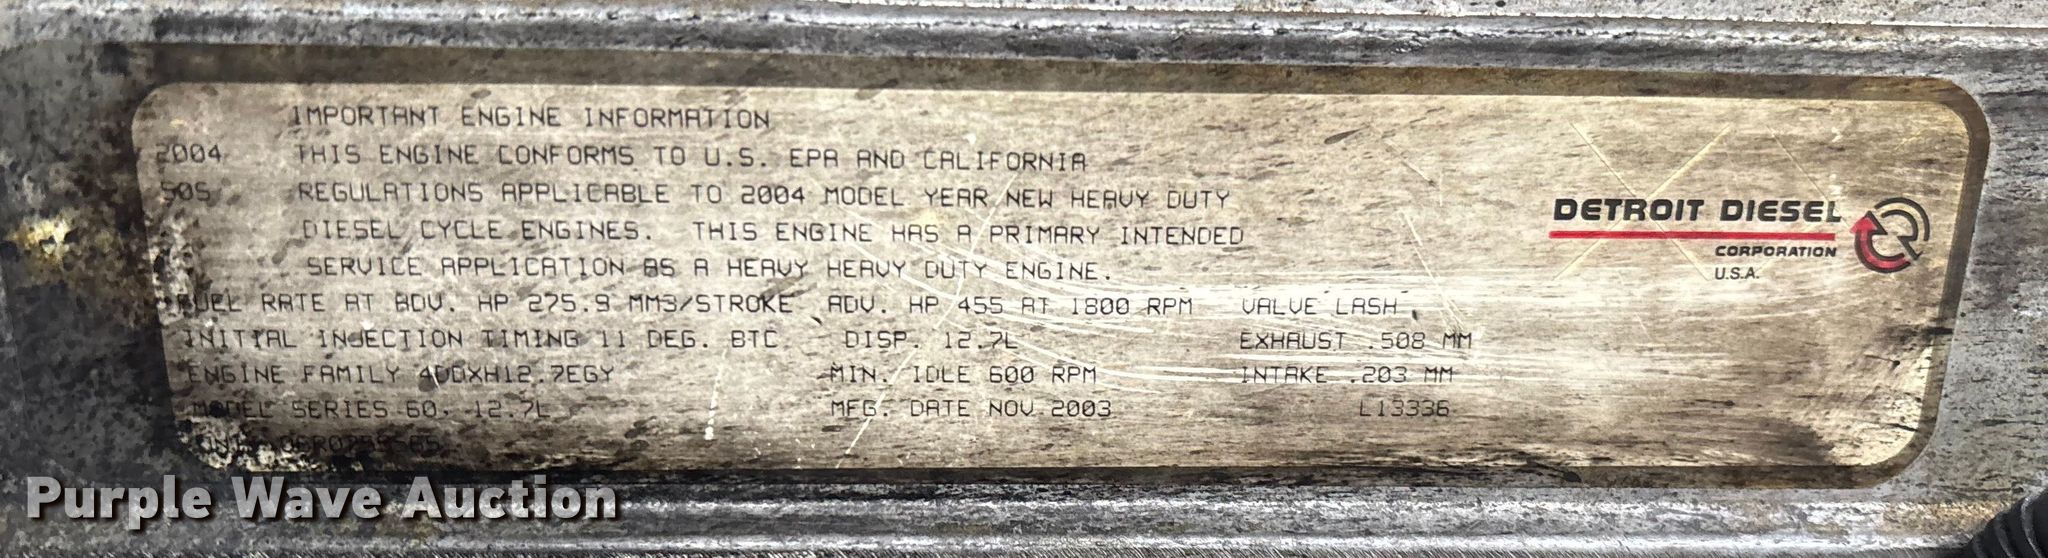 IMPORTANT ENGINE INFORMATION
2004 THIS ENGINE CONFORMS TO U.S. EPA AND CALIFORNIA
50S REGULATIONS APPLICABLE TO 2004 MODEL YEAR NEW HEAVY DUTY
DIESEL CYCLE ENGINES. THIS ENGINE HAS A PRIMARY INTENDED
SERVICE APPLICATION AS A HEAVY HEAVY DUTY ENGINE.
FUEL RATE AT ADV. HP 275.9 MM3/STROKE ADV. HP 455 AT 1800 RPM VALVE LASH
INITIAL INJECTION TIMING 11 DEG. BTC. DISP. 12.7L EXHAUST .508 MM
ENGINE FAMILY 4DDXH12.7EGY MIN. IDLE 600 RPM INTAKE .203 MM
MODEL SERIES 60, 12.7L MFG. DATE NOV 2003 L13336
DETROIT DIESEL
CORPORATION
U.S.A.
Purple Wave Auction